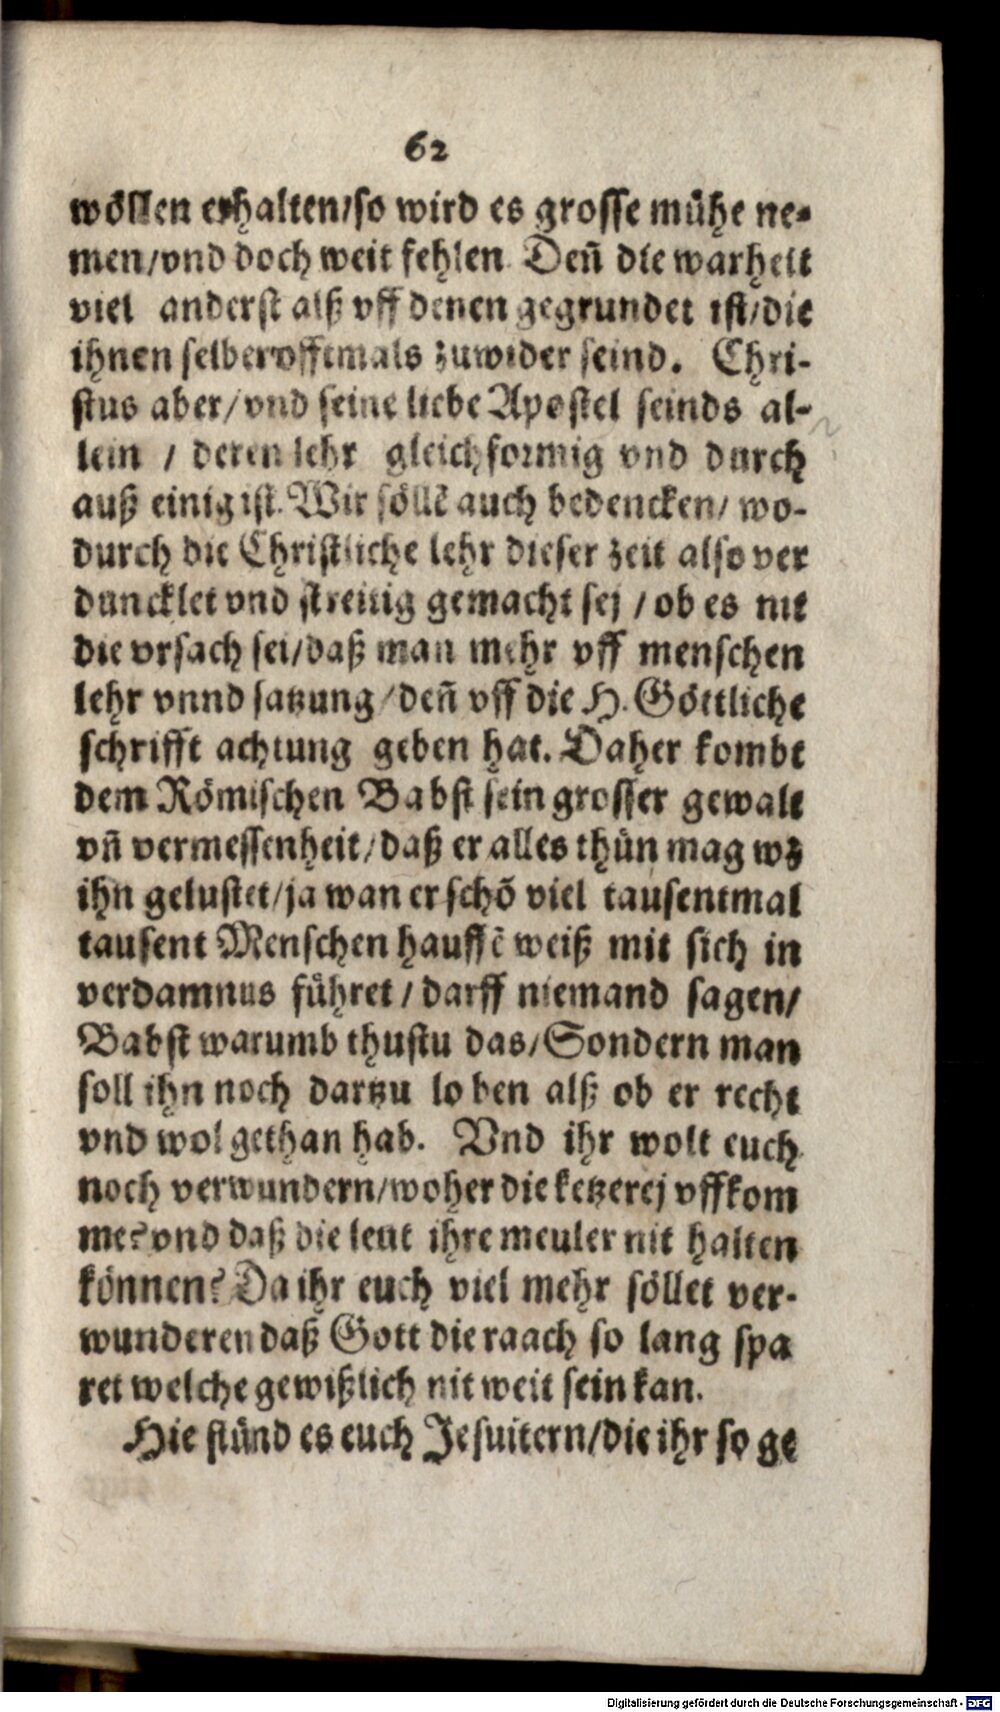 62
wöllen erhalten/so wird es grosse mühe ne-
men/vnd doch weit fehlen. Deñ die warheit
viel anderst alß vff denen gegrundet ist/die
ihnen selber offtmals zuwider seind. Chri-
stus aber/vnd seine liebe Apostel seinds al-
lein / deren lehr gleichformig vnd durch
auß einig ist. Wir söllẽ auch bedencken/ wo-
durch die Christliche lehr dieser zeit also ver
duncklet vnd streitig gemacht sej / ob es nit
die vrsach sei/daß man mehr vff menschen
lehr vnnd satzung/deñ vff die H. Göttliche
schrifft achtung geben hat. Daher kombt
dem Römischen Babst sein grosser gewalt
vñ vermessenheit/daß er alles thün mag wz
ihn gelustet/ja wan er schõ viel tausentmal
tausent Menschen hauffẽ weiß mit sich in
verdamnus führet/ darff niemand sagen/
Babst warumb thustu das/Sondern man
soll ihn noch dartzu loben alß ob er recht
vnd wol gethan hab. Vnd ihr wolt euch
noch verwundern/woher die ketzerej vffkom
me? vnd daß die leut ihre meuler nit halten
können? Da ihr euch viel mehr söllet ver-
wunderen daß Gott die raach so lang spa
ret welche gewißlich nit weit sein kan.
Hie stünd es euch Jesuitern/die ihr so ge
Digitalisierung gefördert durch die Deutsche Forschungsgemeinschaft - DFG